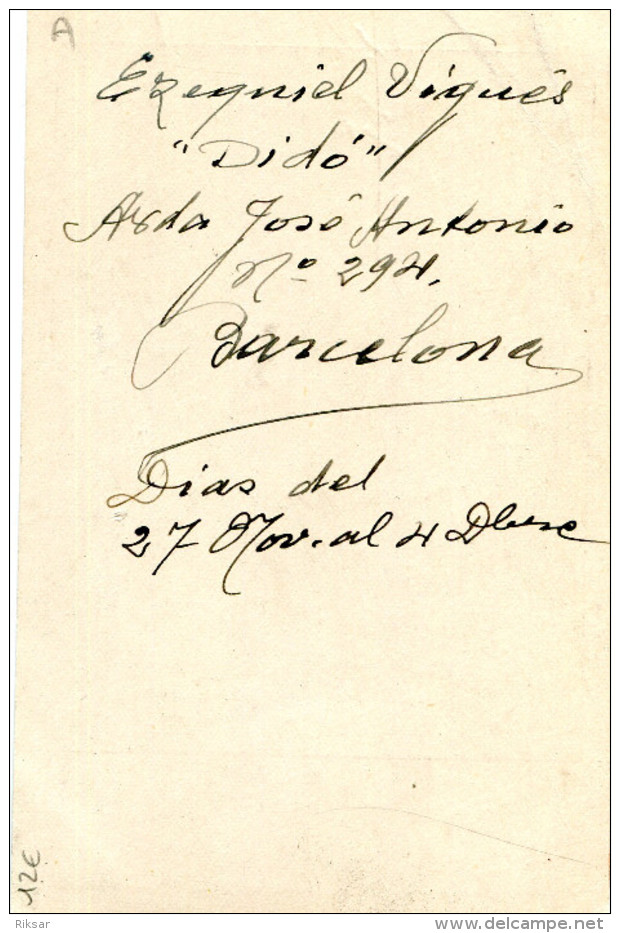 A
Ezequiel Vigués
"Didó"
Avda José Antonio
Nº 294.
Barcelona
Dias del
27 Nov. al 4 Dbre
12€
Riksar
www.delcampe.net